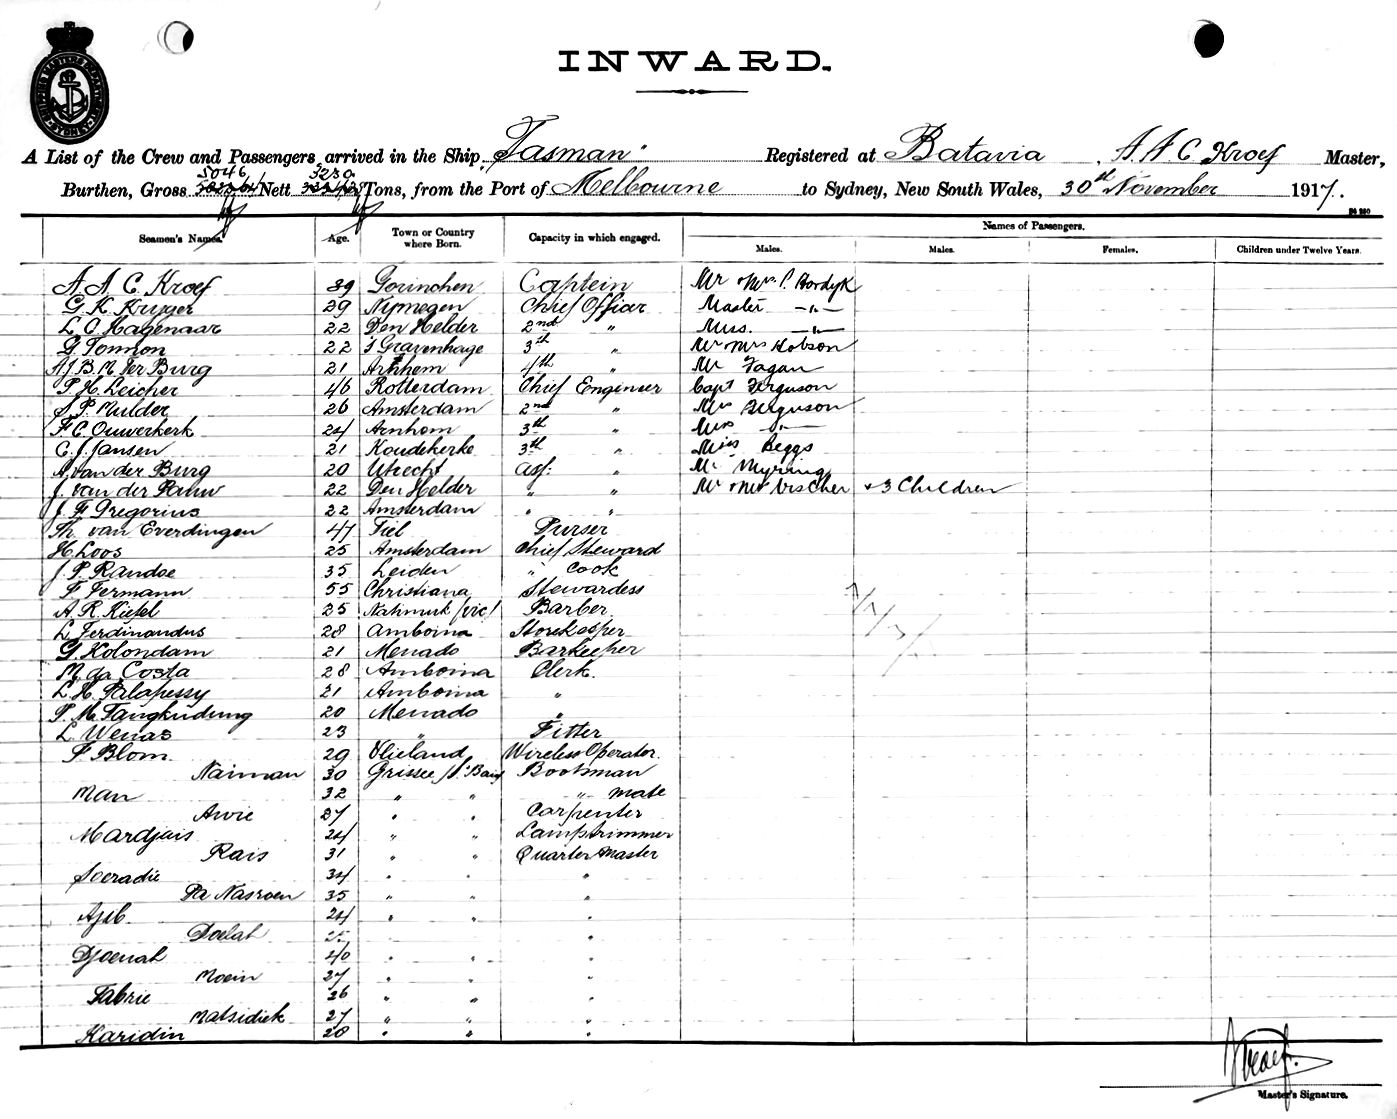 SHIPPING MASTERS DEPARTMENT SYDNEY
INWARD.
A List of the Crew and Passengers arrived in the Ship "Tasman" Registered at Batavia, A. A. C. Kroef Master,
5046 3230
Burthen, Gross Nett Tons, from the Port of Melbourne to Sydney, New South Wales, 30th November 1917.
Seamen's Names. Age. Town or Country where Born. Capacity in which engaged. Names of Passengers.
Males. Males. Females. Children under Twelve Years.
A. A. C. Kroef 39 Gorinchen Captein Mr & Mrs P. Hordyk
G. K. Kruger 29 Nymegen Chief Officer Master -"-
L. O. Hagenaar 22 Den Helder 2nd " Miss. -"-
G. Tonnon 22 's Gravenhage 3th " Mr & Mrs Hobson
A. J. B. M. Ter Burg 21 Arnhem 4th " Mr Fagan
P. H. Leicher 46 Rotterdam Chief Engineer Capt Ferguson
S. P. Mulder 26 Amsterdam 2nd " Mrs Ferguson
F. C. Ouwerkerk 24 Arnhem 3th " Miss -"-
C. J. Jansen 21 Koudekerke 3th " Miss Beggs
A. van der Burg 20 Utrecht ass: " Mr Myring
J. van der Pauw 22 Den Helder " " Mr & Mrs Visscher & 3 Children
J. F. Gregorius 22 Amsterdam " "
Th. van Everdingen 47 Tiel Purser
H. Loos 25 Amsterdam Chief Steward
J. P. Randoe 35 Leiden " Cook
F. Fermann 55 Christiana Stewardess
A. R. Kiefel 25 Natimuk (Vic) Barber
L. Ferdinandus 28 Amboina Storekeeper
G. Kolondam 21 Menado Barkeeper
M. da Costa 28 Amboina Clerk.
L. H. Palapessy 21 Amboina "
P. M. Tangkudung 20 Menado "
L. Wenas 23 " Fitter
F. Blom 29 Vlieland Wireless Operator.
Naiman 30 Grissee / Bootsman
Man 32 " " " mate
Awie 27 " " Carpenter
Mardjais 24 " " Lamptrimmer
Rais 31 " " Quarter Master
Soeradie 34 "
Pa Nasroen 35 " " "
Ajib 24 " " "
Doelah "
Djoenah 40 " " "
Moein 27 " " "
Fabrie 26 " " "
Matsidick 27 " " "
Karidin 28 " " "
Kroef.
Master's Signature.